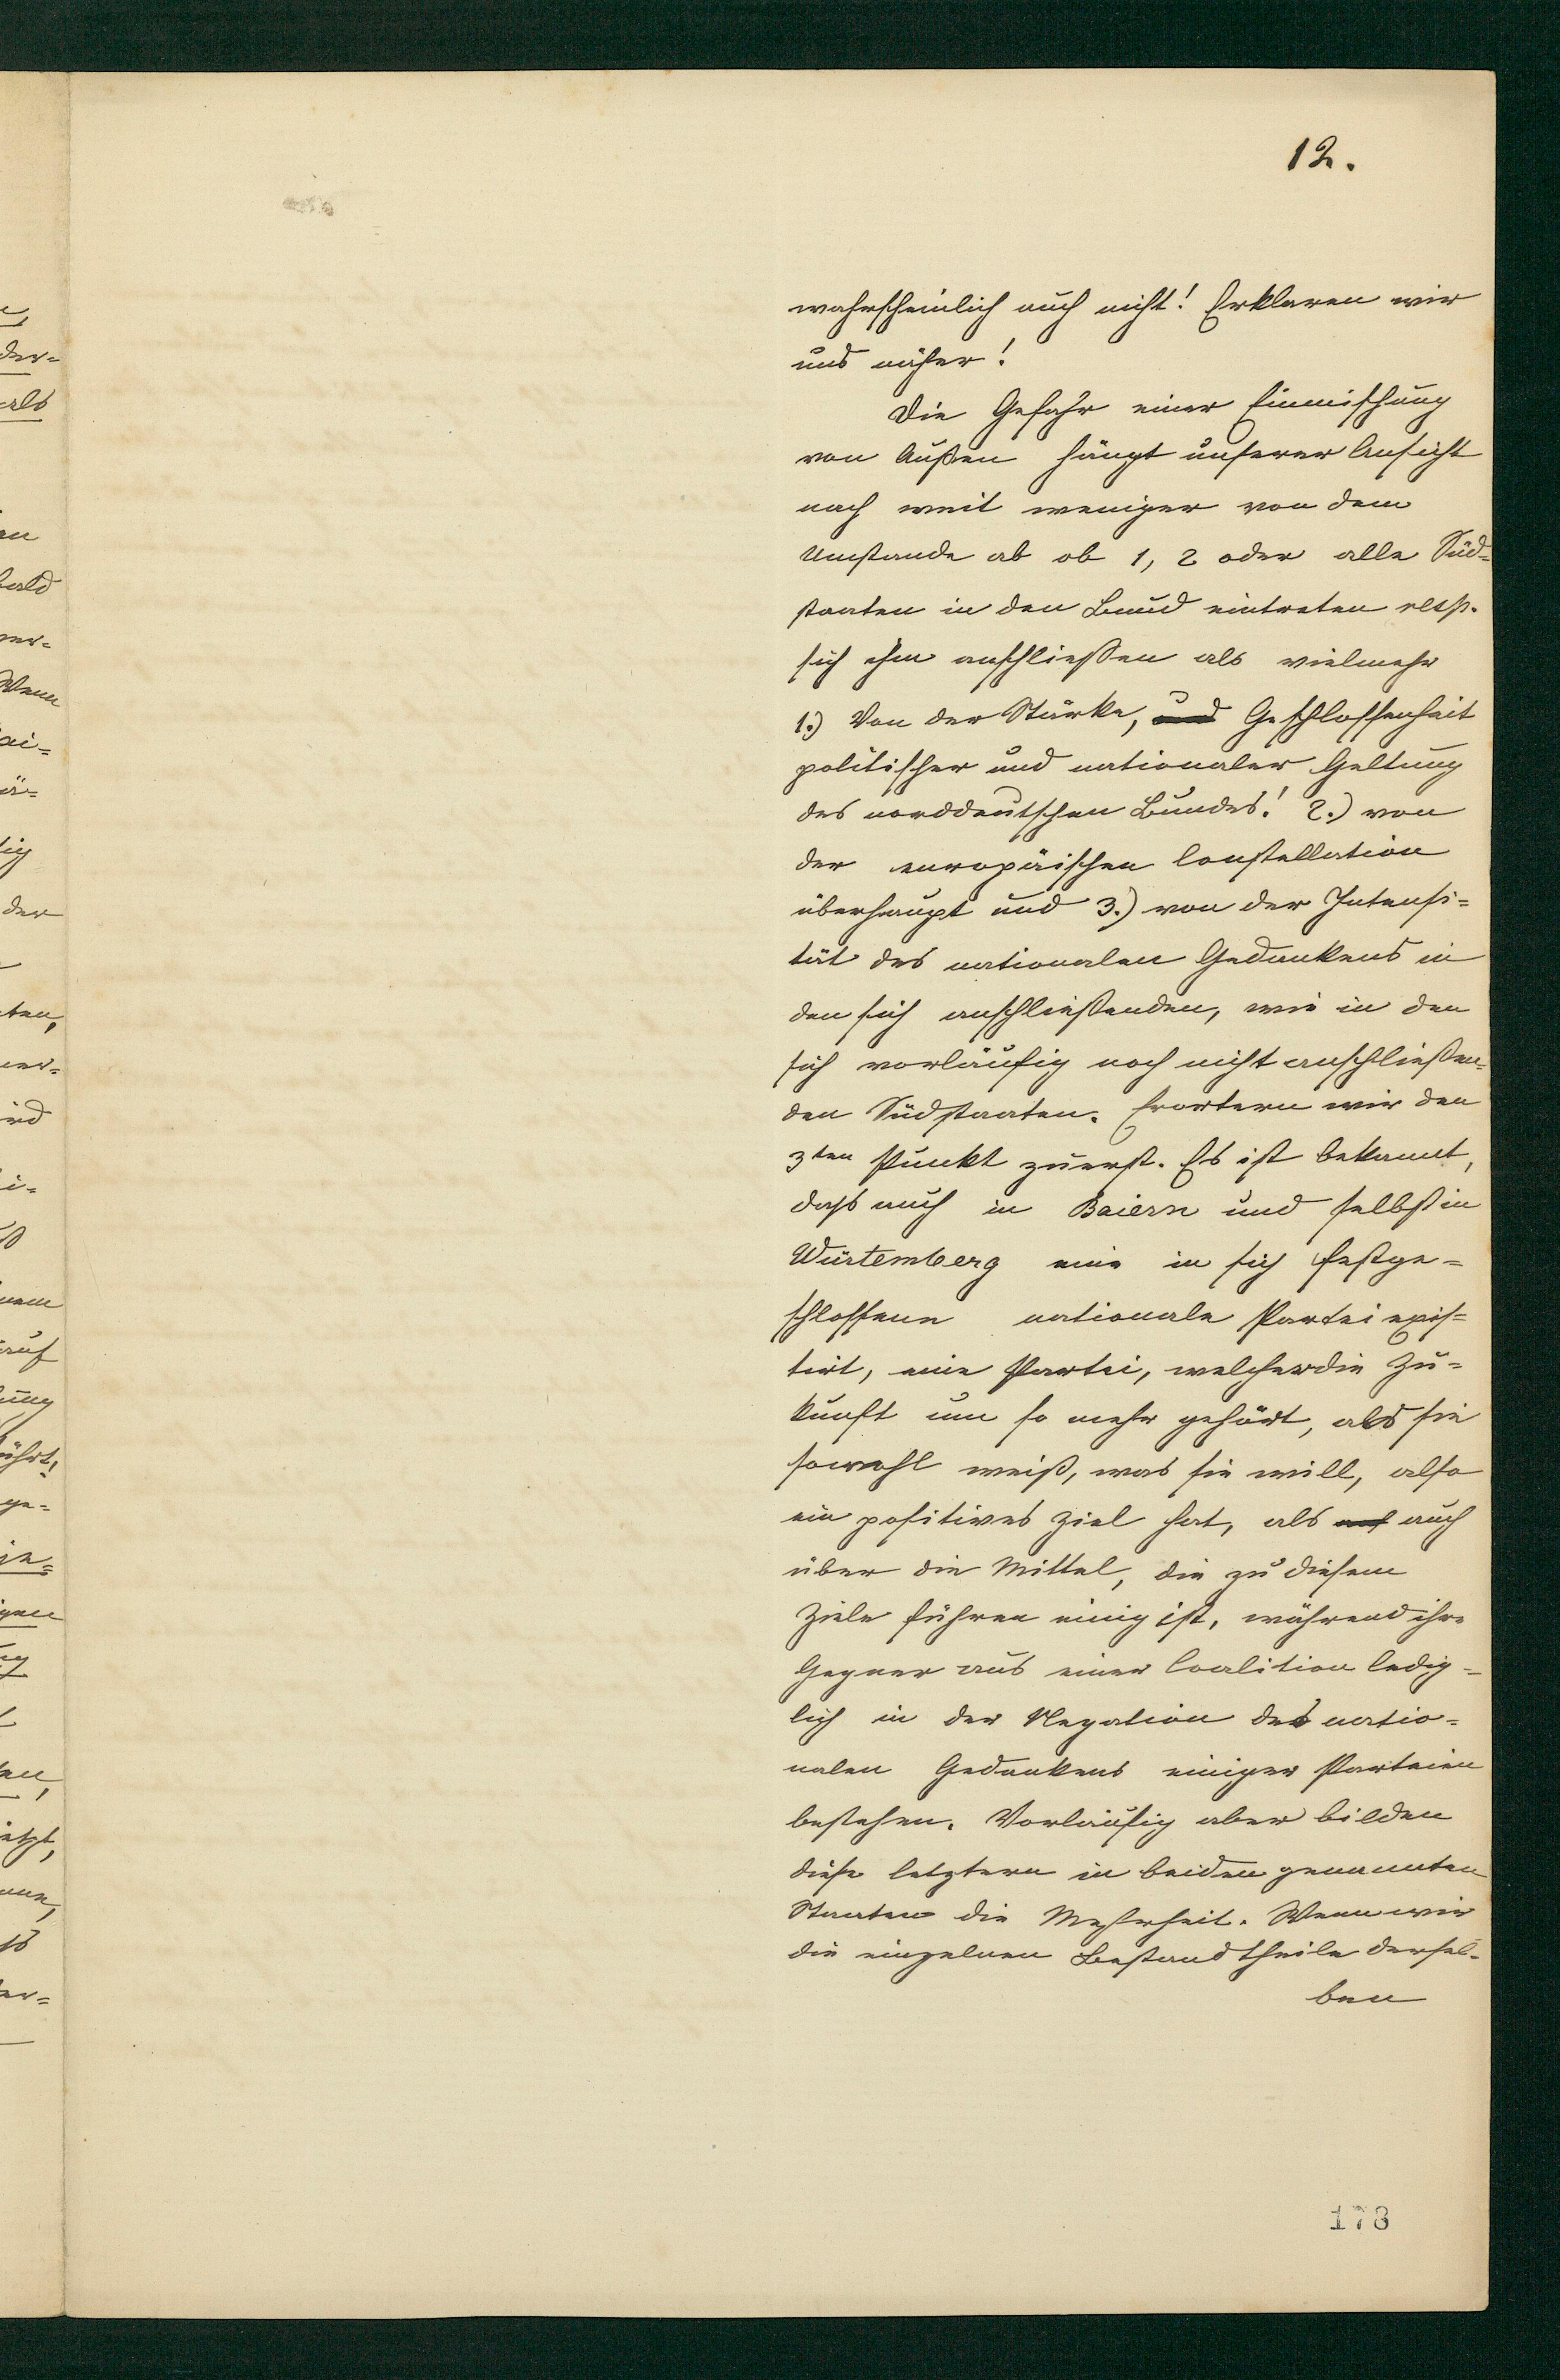 12.
wahrscheinlich auch nicht! Erklaren wir
uns näher!
Die Gefahr einer Einmischung
von Außen hängt unserer Ansicht
nach weit weniger von dem
Umstande ab ob 1, 2 oder alle Süd-
staaten in den Bund eintreten resp.
sich ihm anschließen als vielmehr
1.) Von der Stärke, und Geschlossenheit
politischer und nationaler Geltung
des norddeutschen Bundes! 2.) von
der europäischen Constellation
überhaupt und 3.) von der Intensi=
tät des nationalen Gedankens in
den sich anschließenden, wie in den
sich vorläufig noch nicht anschließen=
den Südstaaten. Erortern wir den
3ten Punkt zuerst. Es ist bekannt,
dass auch in Baiern und selbst in
Würtemberg eine in sich festge=
schlossene nationale Partei exis=
tirt, eine Partei, welcher die Zu=
kunft um so mehr gehört, als sie
sowohl weiß, was sie will, also
ein positives Ziel hat, als auf auch
über die Mittel, die zu diesem
Ziele führen einig ist, während ihre
Gegner aus einer Coalition ledig=
lich in der Negation des natio=
nalen Gedankens einiger Parteien
bestehen. Vorläufig aber bilden
diese letztern in beiden genannten
Staaten die Mehrheit. Wenn wir
die einzelnen Bestandtheile dersel-
ben
178
der=
als
bald
ver=
Wenn
ai=
ä=
der
ten,
i=
auf
ührt!
ge=